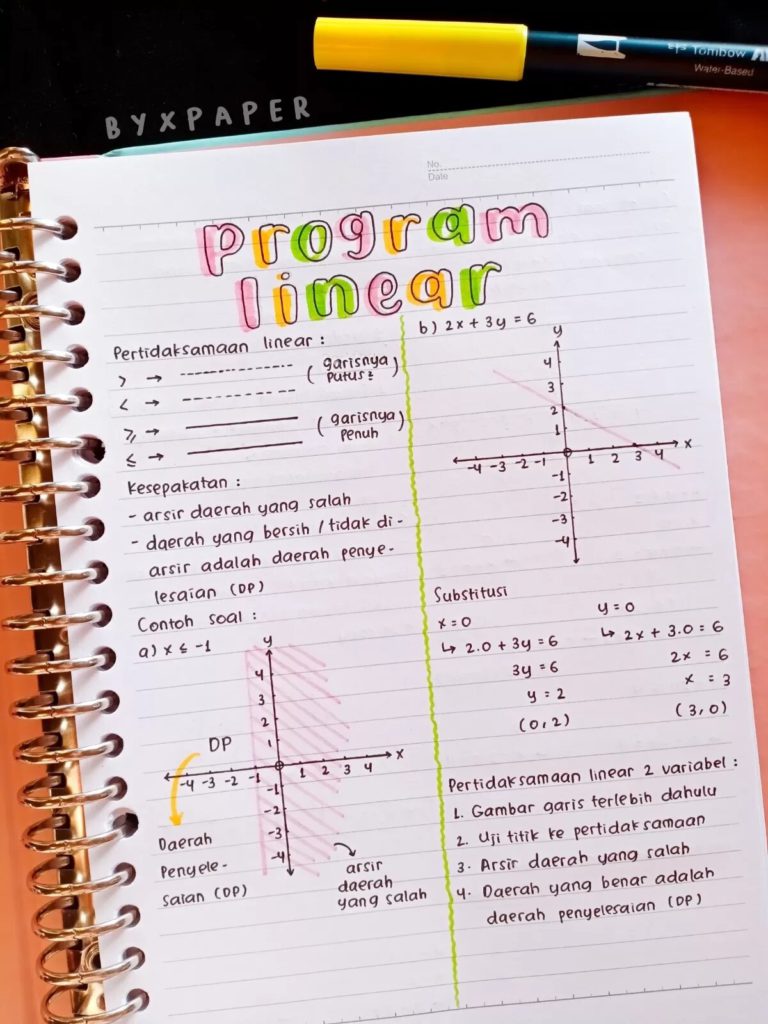 Tombow
Water-Based
BYXPAPER
No.
Date
program
linear
Pertidaksamaan linear :
> → ( garisnya
putus² )
< →
≥ → ( garisnya
penuh )
≤ →
Kesepakatan :
- arsir daerah yang salah
- daerah yang bersih / tidak di-
arsir adalah daerah penye-
lesaian (DP)
Contoh soal :
a) x ≤ -1
y
4
3
2
1
DP
x
-4 -3 -2 -1 1 2 3 4
-1
-2
-3
-4
Daerah
Penyele-
saian (DP)
arsir
daerah
yang salah
b) 2x + 3y = 6
y
4
3
2
1
x
-4 -3 -2 -1 1 2 3 4
-1
-2
-3
-4
Substitusi
x = 0
↳ 2.0 + 3y = 6
3y = 6
y = 2
(0,2)
y = 0
↳ 2x + 3.0 = 6
2x = 6
x = 3
(3,0)
Pertidaksamaan linear 2 variabel :
1. Gambar garis terlebih dahulu
2. Uji titik ke pertidaksamaan
3. Arsir daerah yang salah
4. Daerah yang benar adalah
daerah penyelesaian (DP)